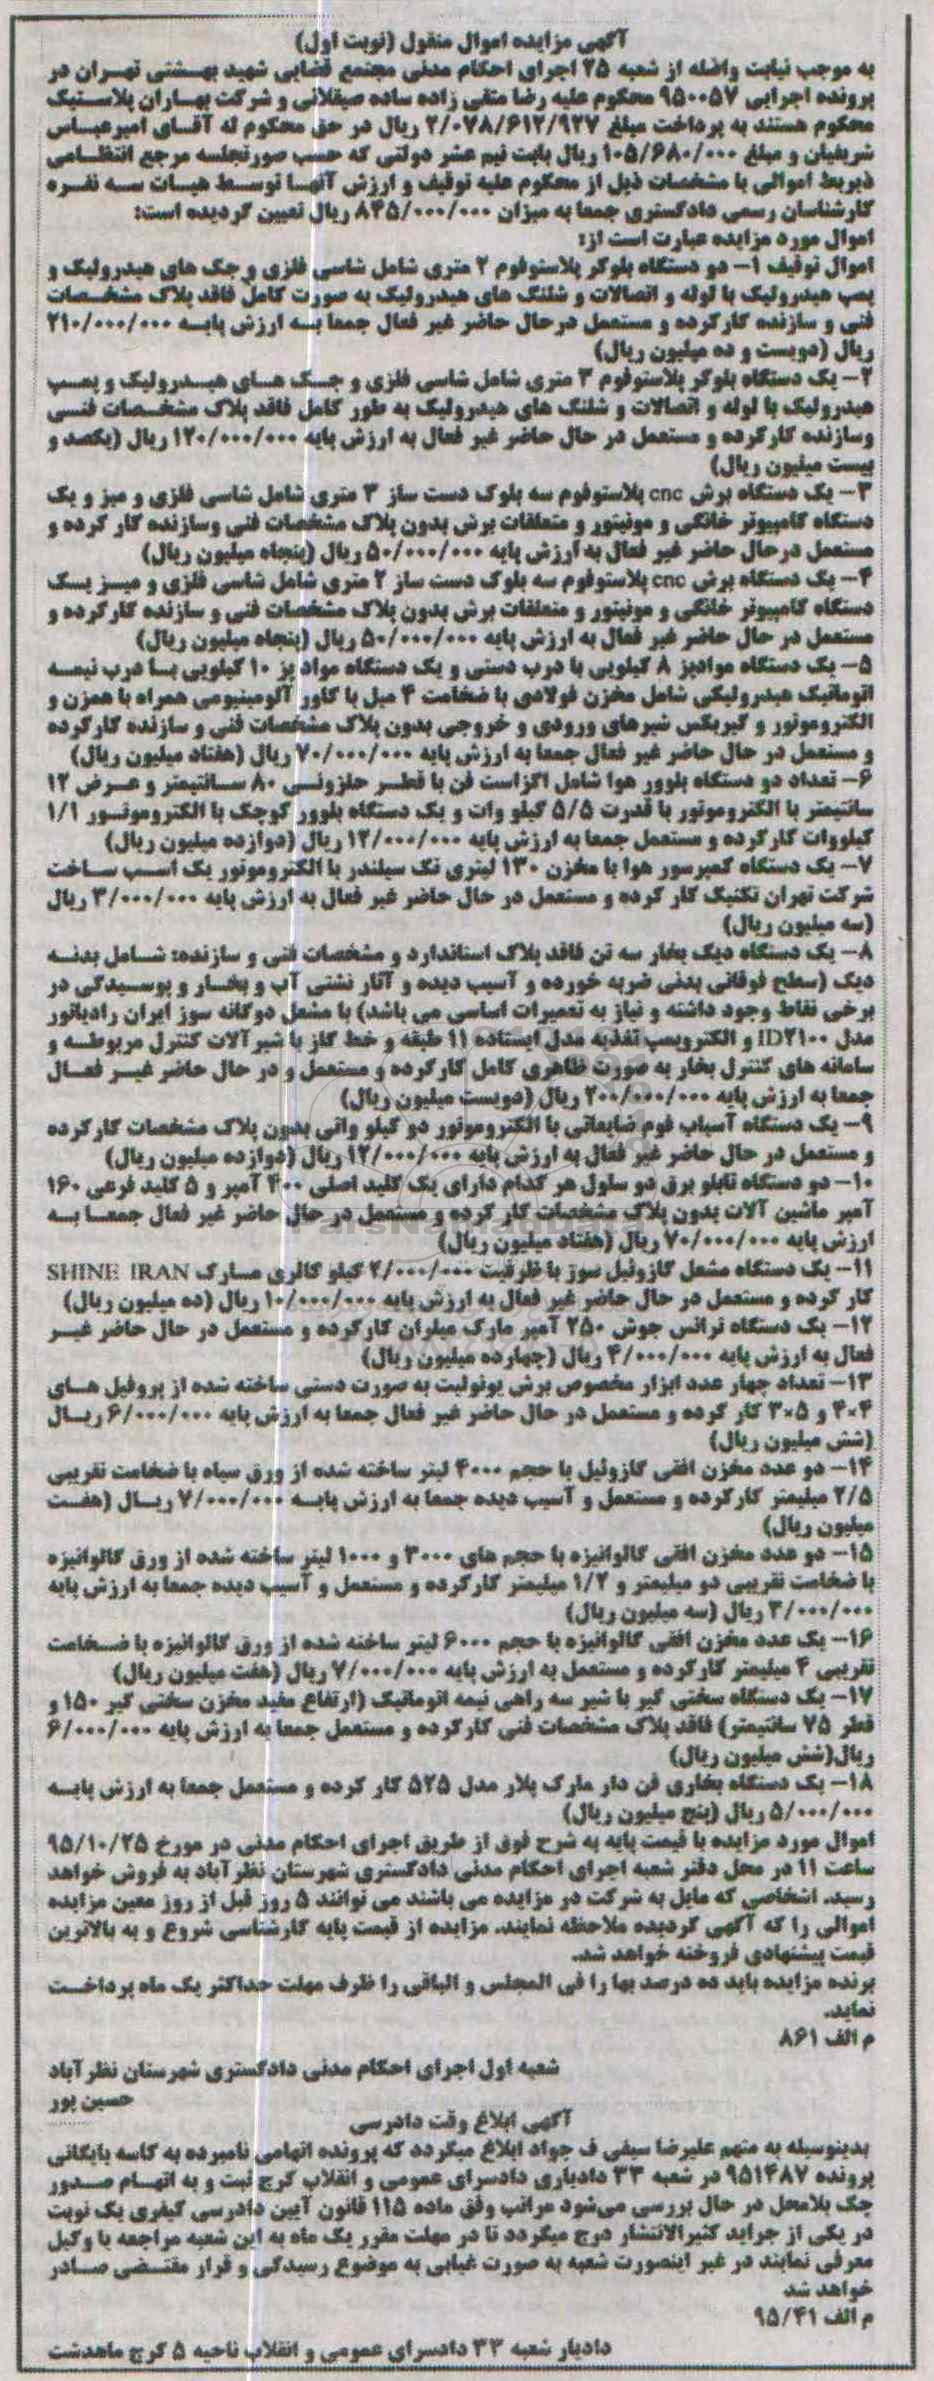 آگهی مزایده اموال منقول (نوبت اول)
به موجب نیابت واصله از شعبه ۲۵ اجرای احکام مدنی مجتمع قضایی شهید بهشتی تهران در
پرونده اجرایی ۹۵۰۰۵۷ محکوم علیه رضا متقی زاده ساده صیقلانی و شرکت بهاران پلاستیک
محکوم هستند به پرداخت مبلغ ۲/۰۷۸/۶۱۲/۹۲۷ ریال در حق محکوم له آقای امیرعباس
شریفیان و مبلغ ۱۰۵/۶۸۰/۰۰۰ ریال بابت نیم عشر دولتی که حسب صورتجلسه مرجع انتظامی
ذیربط اموالی با مشخصات ذیل از محکوم علیه توقیف و ارزش آنها توسط هیات سه نفره
کارشناسان رسمی دادگستری جمعا به میزان ۸۴۵/۰۰۰/۰۰۰ ریال تعیین گردیده است:
اموال مورد مزایده عبارت است از:
اموال توقیف ۱- دو دستگاه بلوکر پلاستوفوم ۲ متری شامل شاسی فلزی و جک های هیدرولیک و
پمپ هیدرولیک با لوله و اتصالات و شلنگ های هیدرولیک به صورت کامل فاقد پلاک مشخصات
فنی و سازنده کارکرده و مستعمل درحال حاضر غیر فعال جمعا به ارزش پایه ۲۱۰/۰۰۰/۰۰۰
ریال (دویست و ده میلیون ریال)
۲- یک دستگاه بلوکر پلاستوفوم ۳ متری شامل شاسی فلزی و جک های هیدرولیک و پمپ
هیدرولیک با لوله و اتصالات و شلنگ های هیدرولیک به طور کامل فاقد پلاک مشخصات فنی
وسازنده کارکرده و مستعمل در حال حاضر غیر فعال به ارزش پایه ۱۲۰/۰۰۰/۰۰۰ ریال (یکصد و
بیست میلیون ریال)
۳- یک دستگاه برش cnc پلاستوفوم سه بلوک دست ساز ۳ متری شامل شاسی فلزی و میز و یک
دستگاه کامپیوتر خانگی و مونیتور و متعلقات برش بدون پلاک مشخصات فنی وسازنده کار کرده و
مستعمل درحال حاضر غیر فعال به ارزش پایه ۵۰/۰۰۰/۰۰۰ ریال (پنجاه میلیون ریال)
۴- یک دستگاه برش cnc پلاستوفوم سه بلوک دست ساز ۲ متری شامل شاسی فلزی و میز یک
دستگاه کامپیوتر خانگی و مونیتور و متعلقات برش بدون پلاک مشخصات فنی و سازنده کارکرده و
مستعمل در حال حاضر غیر فعال به ارزش پایه ۵۰/۰۰۰/۰۰۰ ریال (پنجاه میلیون ریال)
۵- یک دستگاه موادپز ۸ کیلویی با درب دستی و یک دستگاه مواد پز ۱۰ کیلویی با درب نیمه
اتوماتیک هیدرولیکی شامل مخزن فولادی با ضخامت ۴ میل با کاور آلومینیومی همراه با همزن و
الکتروموتور و گیربکس شیرهای ورودی و خروجی بدون پلاک مشخصات فنی و سازنده کارکرده
و مستعمل در حال حاضر غیر فعال جمعا به ارزش پایه ۷۰/۰۰۰/۰۰۰ ریال (هفتاد میلیون ریال)
۶- تعداد دو دستگاه بلوور هوا شامل اگزاست فن با قطر حلزونی ۸۰ سانتیمتر و عرض ۱۲
سانتیمتر با الکتروموتور با قدرت ۵/۵ کیلو وات و یک دستگاه بلوور کوچک با الکتروموتور ۱/۱
کیلووات کارکرده و مستعمل جمعا به ارزش پایه ۱۲/۰۰۰/۰۰۰ ریال (دوازده میلیون ریال)
۷- یک دستگاه کمپرسور هوا با مخزن ۱۳۰ لیتری تک سیلندر با الکتروموتور یک اسب ساخت
شرکت تهران تکنیک کار کرده و مستعمل در حال حاضر غیر فعال به ارزش پایه ۳/۰۰۰/۰۰۰ ریال
(سه میلیون ریال)
۸- یک دستگاه دیگ بخار سه تن فاقد پلاک استاندارد و مشخصات فنی و سازنده: شامل بدنه
دیگ (سطح فوقانی بدنی ضربه خورده و آسیب دیده و آثار نشتی آب و بخار و پوسیدگی در
برخی نقاط وجود داشته و نیاز به تعمیرات اساسی می باشد) با مشعل دوگانه سوز ایران رادیاتور
مدل ID۲۱۰۰ و الکتروپمپ تغذیه مدل ایستاده ۱۱ طبقه و خط گاز با شیرآلات کنترل مربوطه و
سامانه های کنترل بخار به صورت ظاهری کامل کارکرده و مستعمل و در حال حاضر غیر فعال
جمعا به ارزش پایه ۲۰۰/۰۰۰/۰۰۰ ریال (دویست میلیون ریال)
۹- یک دستگاه آسیاب فوم ضایعاتی با الکتروموتور دو کیلو واتی بدون پلاک مشخصات کارکرده
و مستعمل در حال حاضر غیر فعال به ارزش پایه ۱۲/۰۰۰/۰۰۰ ریال (دوازده میلیون ریال)
۱۰- دو دستگاه تابلو برق دو سلول هر کدام دارای یک کلید اصلی ۴۰۰ آمپر و ۵ کلید فرعی ۱۶۰
آمپر ماشین آلات بدون پلاک مشخصات کار کرده و مستعمل در حال حاضر غیر فعال جمعا به
ارزش پایه ۷۰/۰۰۰/۰۰۰ ریال (هفتاد میلیون ریال)
۱۱- یک دستگاه مشعل گازوئیل سوز با ظرفیت ۲/۰۰۰/۰۰۰ کیلو کالری مارک SHINE IRAN
کار کرده و مستعمل در حال حاضر غیر فعال به ارزش پایه ۱۰/۰۰۰/۰۰۰ ریال (ده میلیون ریال)
۱۲- یک دستگاه ترانس جوش ۲۵۰ آمپر مارک میلران کارکرده و مستعمل در حال حاضر غیر
فعال به ارزش پایه ۴/۰۰۰/۰۰۰ ریال (چهارده میلیون ریال)
۱۳- تعداد چهار عدد ابزار مخصوص برش یونولیت به صورت دستی ساخته شده از پروفیل های
۴×۴ و ۵×۳ کار کرده و مستعمل در حال حاضر غیر فعال جمعا به ارزش پایه ۶/۰۰۰/۰۰۰ ریال
(شش میلیون ریال)
۱۴- دو عدد مخزن افقی گازوئیل با حجم ۴۰۰۰ لیتر ساخته شده از ورق سیاه با ضخامت تقریبی
۲/۵ میلیمتر کارکرده و مستعمل و آسیب دیده جمعا به ارزش پایه ۷/۰۰۰/۰۰۰ ریال (هفت
میلیون ریال)
۱۵- دو عدد مخزن افقی گالوانیزه با حجم های ۳۰۰۰ و ۱۰۰۰ لیتر ساخته شده از ورق گالوانیزه
با ضخامت تقریبی دو میلیمتر و ۱/۲ میلیمتر کارکرده و مستعمل و آسیب دیده جمعا به ارزش پایه
۳/۰۰۰/۰۰۰ ریال (سه میلیون ریال)
۱۶- یک عدد مخزن افقی گالوانیزه با حجم ۶۰۰۰ لیتر ساخته شده از ورق گالوانیزه با ضخامت
تقریبی ۴ میلیمتر کارکرده و مستعمل به ارزش پایه ۷/۰۰۰/۰۰۰ ریال (هفت میلیون ریال)
۱۷- یک دستگاه سختی گیر با شیر سه راهی نیمه اتوماتیک (ارتفاع مفید مخزن سختی گیر ۱۵۰ و
قطر ۷۵ سانتیمتر) فاقد پلاک مشخصات فنی کارکرده و مستعمل جمعا به ارزش پایه ۶/۰۰۰/۰۰۰
ریال(شش میلیون ریال)
۱۸- یک دستگاه بخاری فن دار مارک پلار مدل ۵۲۵ کار کرده و مستعمل جمعا به ارزش پایه
۵/۰۰۰/۰۰۰ ریال (پنج میلیون ریال)
اموال مورد مزایده با قیمت پایه به شرح فوق از طریق اجرای احکام مدنی در مورخ ۹۵/۱۰/۲۵
ساعت ۱۱ در محل دفتر شعبه اجرای احکام مدنی دادگستری شهرستان نظرآباد به فروش خواهد
رسید. اشخاصی که مایل به شرکت در مزایده می باشند می توانند ۵ روز قبل از روز معین مزایده
اموالی را که آگهی گردیده ملاحظه نمایند. مزایده از قیمت پایه کارشناسی شروع و به بالاترین
قیمت پیشنهادی فروخته خواهد شد.
برنده مزایده باید ده درصد بها را فی المجلس و الباقی را ظرف مهلت حداکثر یک ماه پرداخت
نماید.
م الف ۸۶۱
شعبه اول اجرای احکام مدنی دادگستری شهرستان نظرآباد
حسین پور
آگهی ابلاغ وقت دادرسی
بدینوسیله به متهم علیرضا سیفی ف جواد ابلاغ میگردد که پرونده اتهامی نامبرده به کلاسه بایگانی
پرونده ۹۵۱۴۸۷ در شعبه ۳۳ دادیاری دادسرای عمومی و انقلاب کرج ثبت و به اتهام صدور
چک بلامحل در حال بررسی می‌شود مراتب وفق ماده ۱۱۵ قانون آیین دادرسی کیفری یک نوبت
در یکی از جراید کثیرالانتشار درج میگردد تا در مهلت مقرر یک ماه به این شعبه مراجعه یا وکیل
معرفی نمایند در غیر اینصورت شعبه به صورت غیابی به موضوع رسیدگی و قرار مقتضی صادر
خواهد شد
م الف ۹۵/۴۱
دادیار شعبه ۳۳ دادسرای عمومی و انقلاب ناحیه ۵ کرج ماهدشت